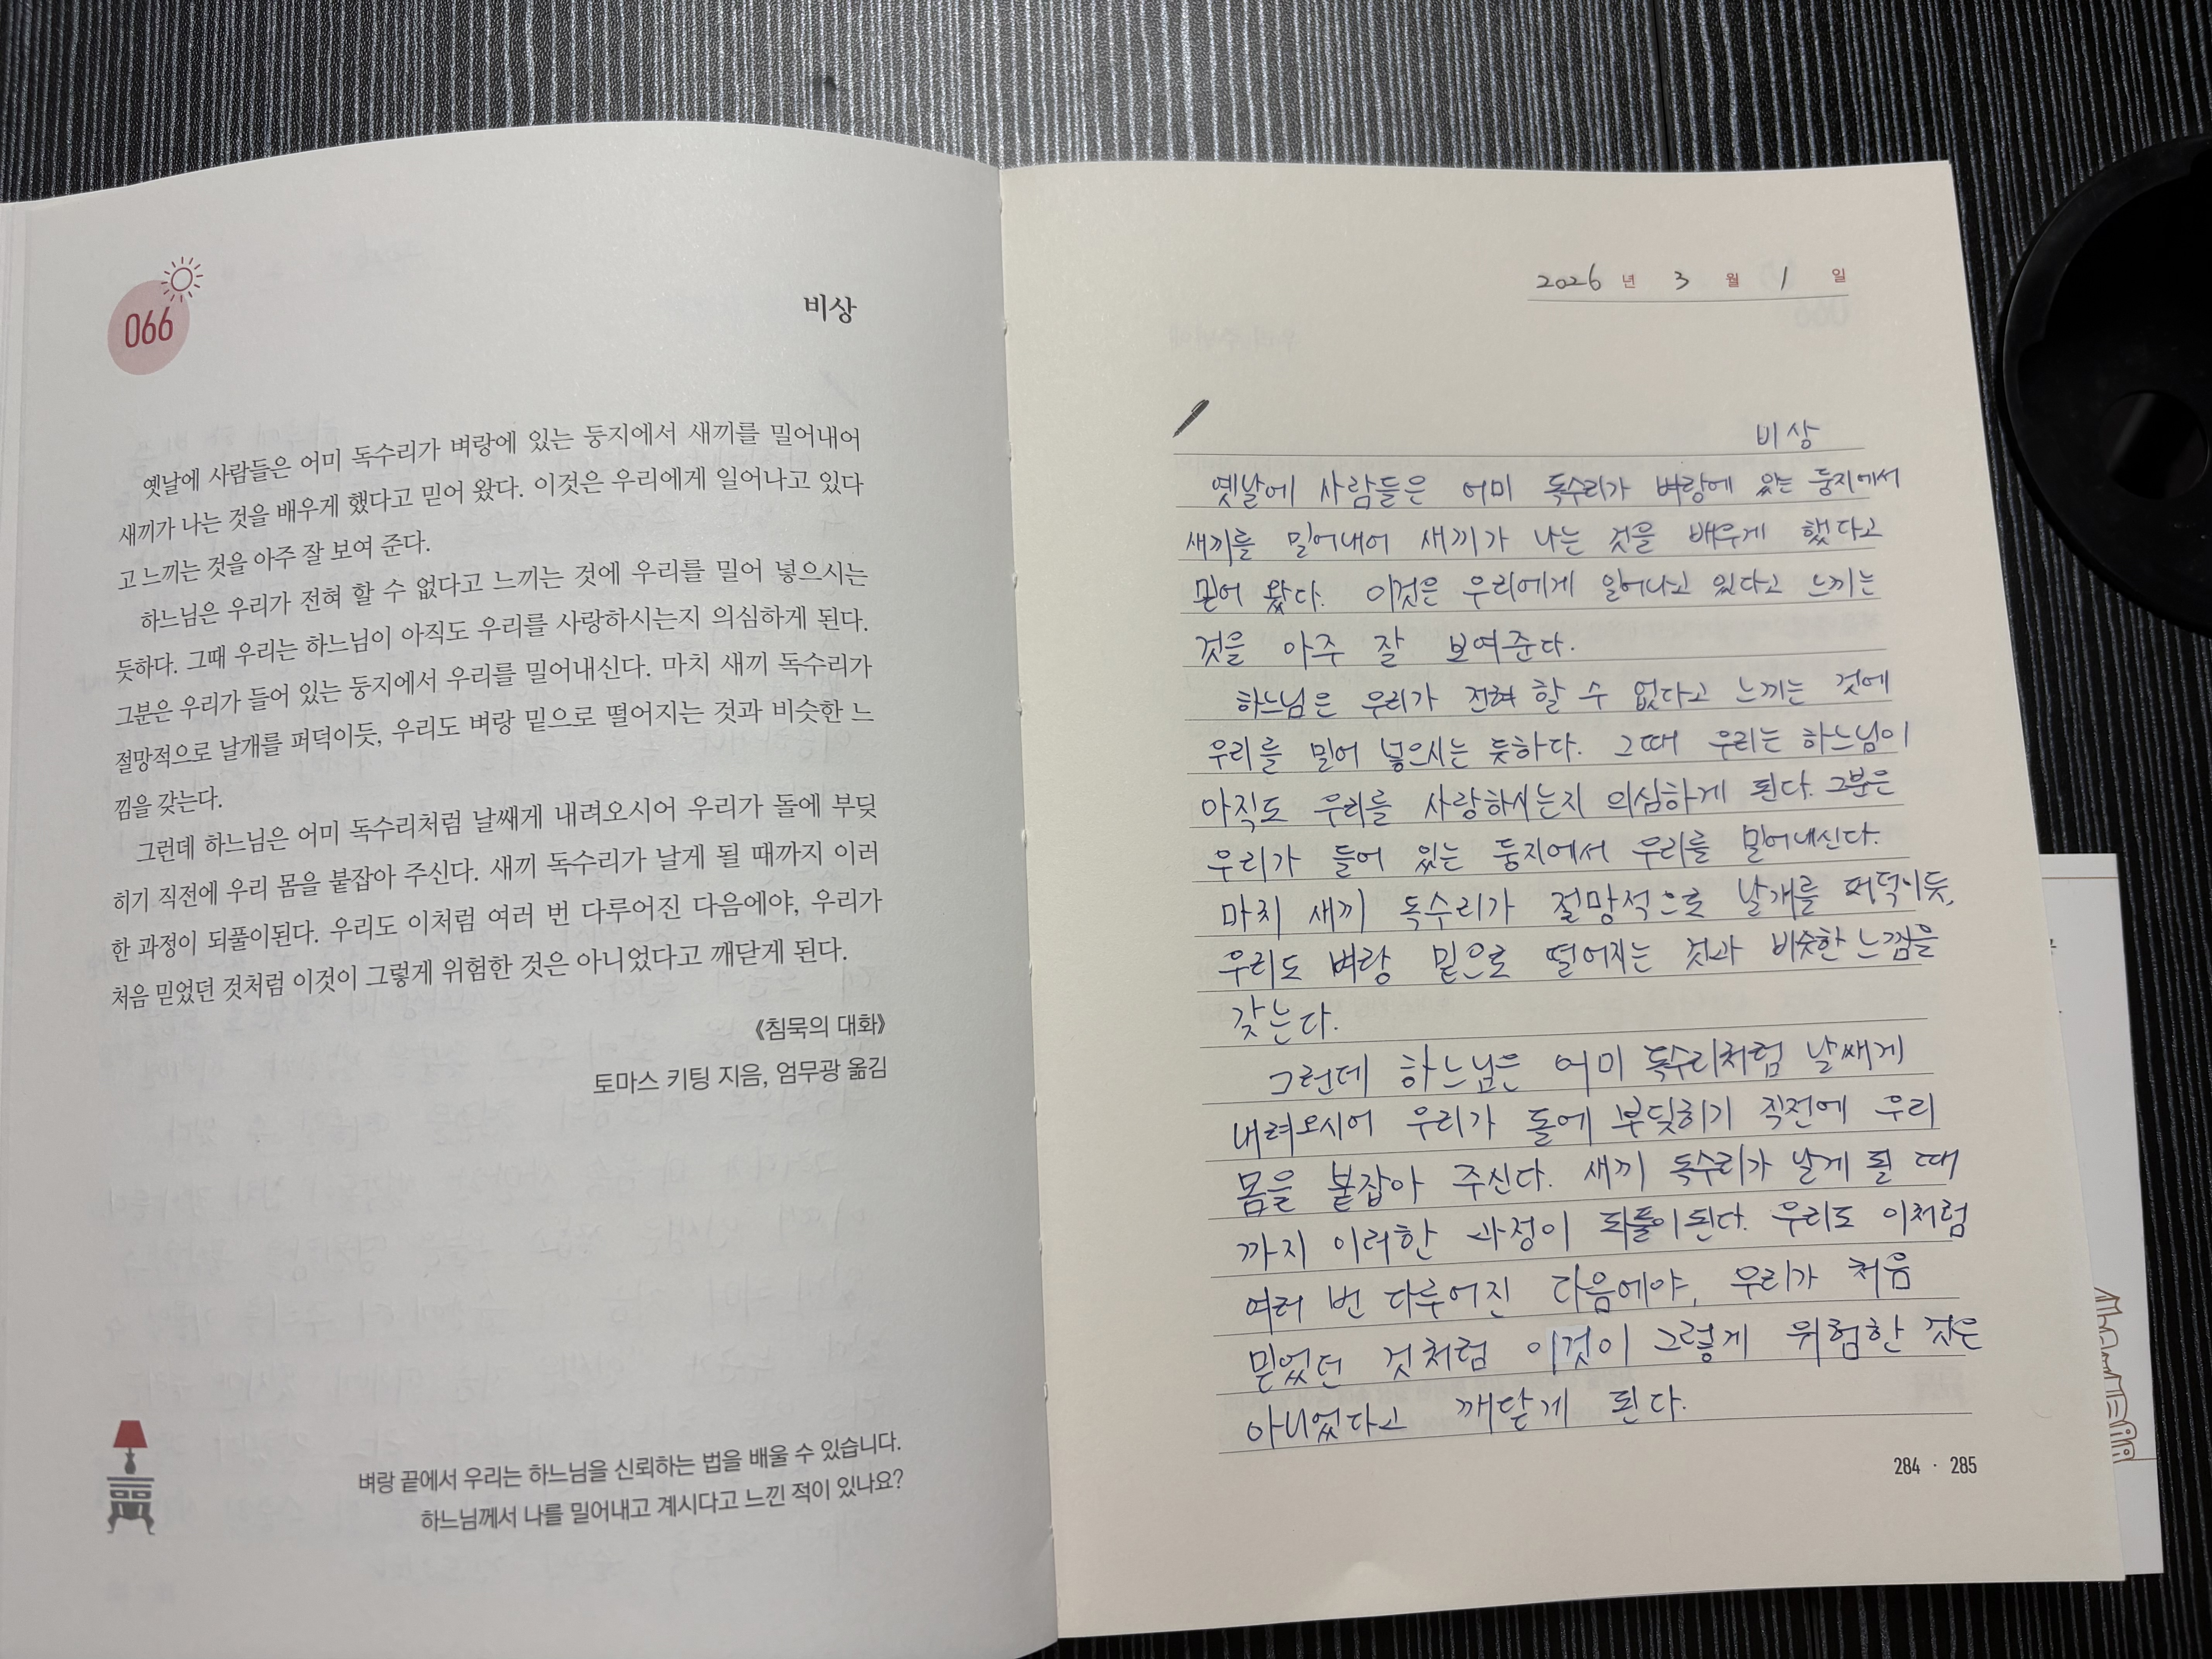 066
비상
옛날에 사람들은 어미 독수리가 벼랑에 있는 둥지에서 새끼를 밀어내어
새끼가 나는 것을 배우게 했다고 믿어 왔다. 이것은 우리에게 일어나고 있다
고 느끼는 것을 아주 잘 보여 준다.
하느님은 우리가 전혀 할 수 없다고 느끼는 것에 우리를 밀어 넣으시는
듯하다. 그때 우리는 하느님이 아직도 우리를 사랑하시는지 의심하게 된다.
그분은 우리가 들어 있는 둥지에서 우리를 밀어내신다. 마치 새끼 독수리가
절망적으로 날개를 퍼덕이듯, 우리도 벼랑 밑으로 떨어지는 것과 비슷한 느
낌을 갖는다.
그런데 하느님은 어미 독수리처럼 날쌔게 내려오시어 우리가 돌에 부딪
히기 직전에 우리 몸을 붙잡아 주신다. 새끼 독수리가 날게 될 때까지 이러
한 과정이 되풀이된다. 우리도 이처럼 여러 번 다루어진 다음에야, 우리가
처음 믿었던 것처럼 이것이 그렇게 위험한 것은 아니었다고 깨닫게 된다.
《침묵의 대화》
토마스 키팅 지음, 엄무광 옮김
벼랑 끝에서 우리는 하느님을 신뢰하는 법을 배울 수 있습니다.
하느님께서 나를 밀어내고 계시다고 느낀 적이 있나요?
2026 년 3 월 1 일
비상
옛날에 사람들은 어미 독수리가 벼랑에 있는 둥지에서
새끼를 밀어내어 새끼가 나는 것을 배우게 했다고
믿어 왔다. 이것은 우리에게 일어나고 있다고 느끼는
것을 아주 잘 보여준다.
하느님은 우리가 전혀 할 수 없다고 느끼는 것에
우리를 밀어 넣으시는 듯하다. 그때 우리는 하느님이
아직도 우리를 사랑하시는지 의심하게 된다. 그분은
우리가 들어 있는 둥지에서 우리를 밀어내신다.
마치 새끼 독수리가 절망적으로 날개를 퍼덕이듯,
우리도 벼랑 밑으로 떨어지는 것과 비슷한 느낌을
갖는다.
그런데 하느님은 어미 독수리처럼 날쌔게
내려오시어 우리가 돌에 부딪히기 직전에 우리
몸을 붙잡아 주신다. 새끼 독수리가 날게 될 때
까지 이러한 과정이 되풀이된다. 우리도 이처럼
여러 번 다루어진 다음에야, 우리가 처음
믿었던 것처럼 이것이 그렇게 위험한 것은
아니었다고 깨닫게 된다.
284 · 285